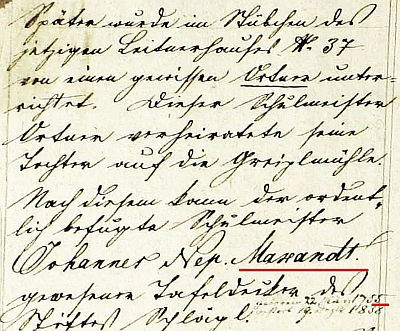 Später wurde im Stübchen des
jetzigen Leitnerhauses N. 37
von einen gewissen Ortner unter-
richtet. Dieser Schulmeister
Ortner verheiratete seine
Tochter auf die Greiplmühle.
Nach diesem kam der ordent-
lich befugte Schulmeister
Johannes Nep. Maxandt.
gewesener Tafeldecker des
22. 1755
19. 1838
Stiftes Schlägl.